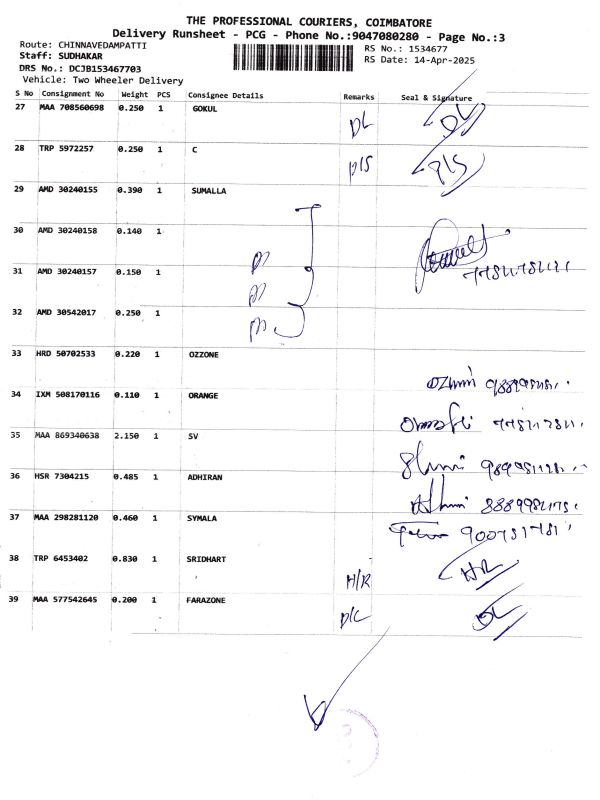 THE PROFESSIONAL COURIERS, COIMBATORE
Delivery Runsheet - PCG - Phone No.:9047080280 - Page No.:3
Route: CHINNAVEDAMPATTI RS No.: 1534677
Staff: SUDHAKAR RS Date: 14-Apr-2025
DRS No.: DCJB153467703
Vehicle: Two Wheeler Delivery
S No Consignment No Weight PCS Consignee Details Remarks Seal & Signature
27 MAA 708560698 0.250 1 GOKUL DL DL
28 TRP 5972257 0.250 1 C P/S P/S
29 AMD 30240155 0.390 1 SUMALLA
30 AMD 30240158 0.140 1
31 AMD 30240157 0.150 1
32 AMD 30542017 0.250 1
33 HRD 50702533 0.220 1 OZZONE
34 IXM 508170116 0.110 1 ORANGE
35 MAA 869340638 2.150 1 SV
36 HSR 7304215 0.485 1 ADHIRAN
37 MAA 298281120 0.460 1 SYMALA
38 TRP 6453402 0.830 1 SRIDHART H/R HR
39 MAA 577542645 0.200 1 FARAZONE D/L DL